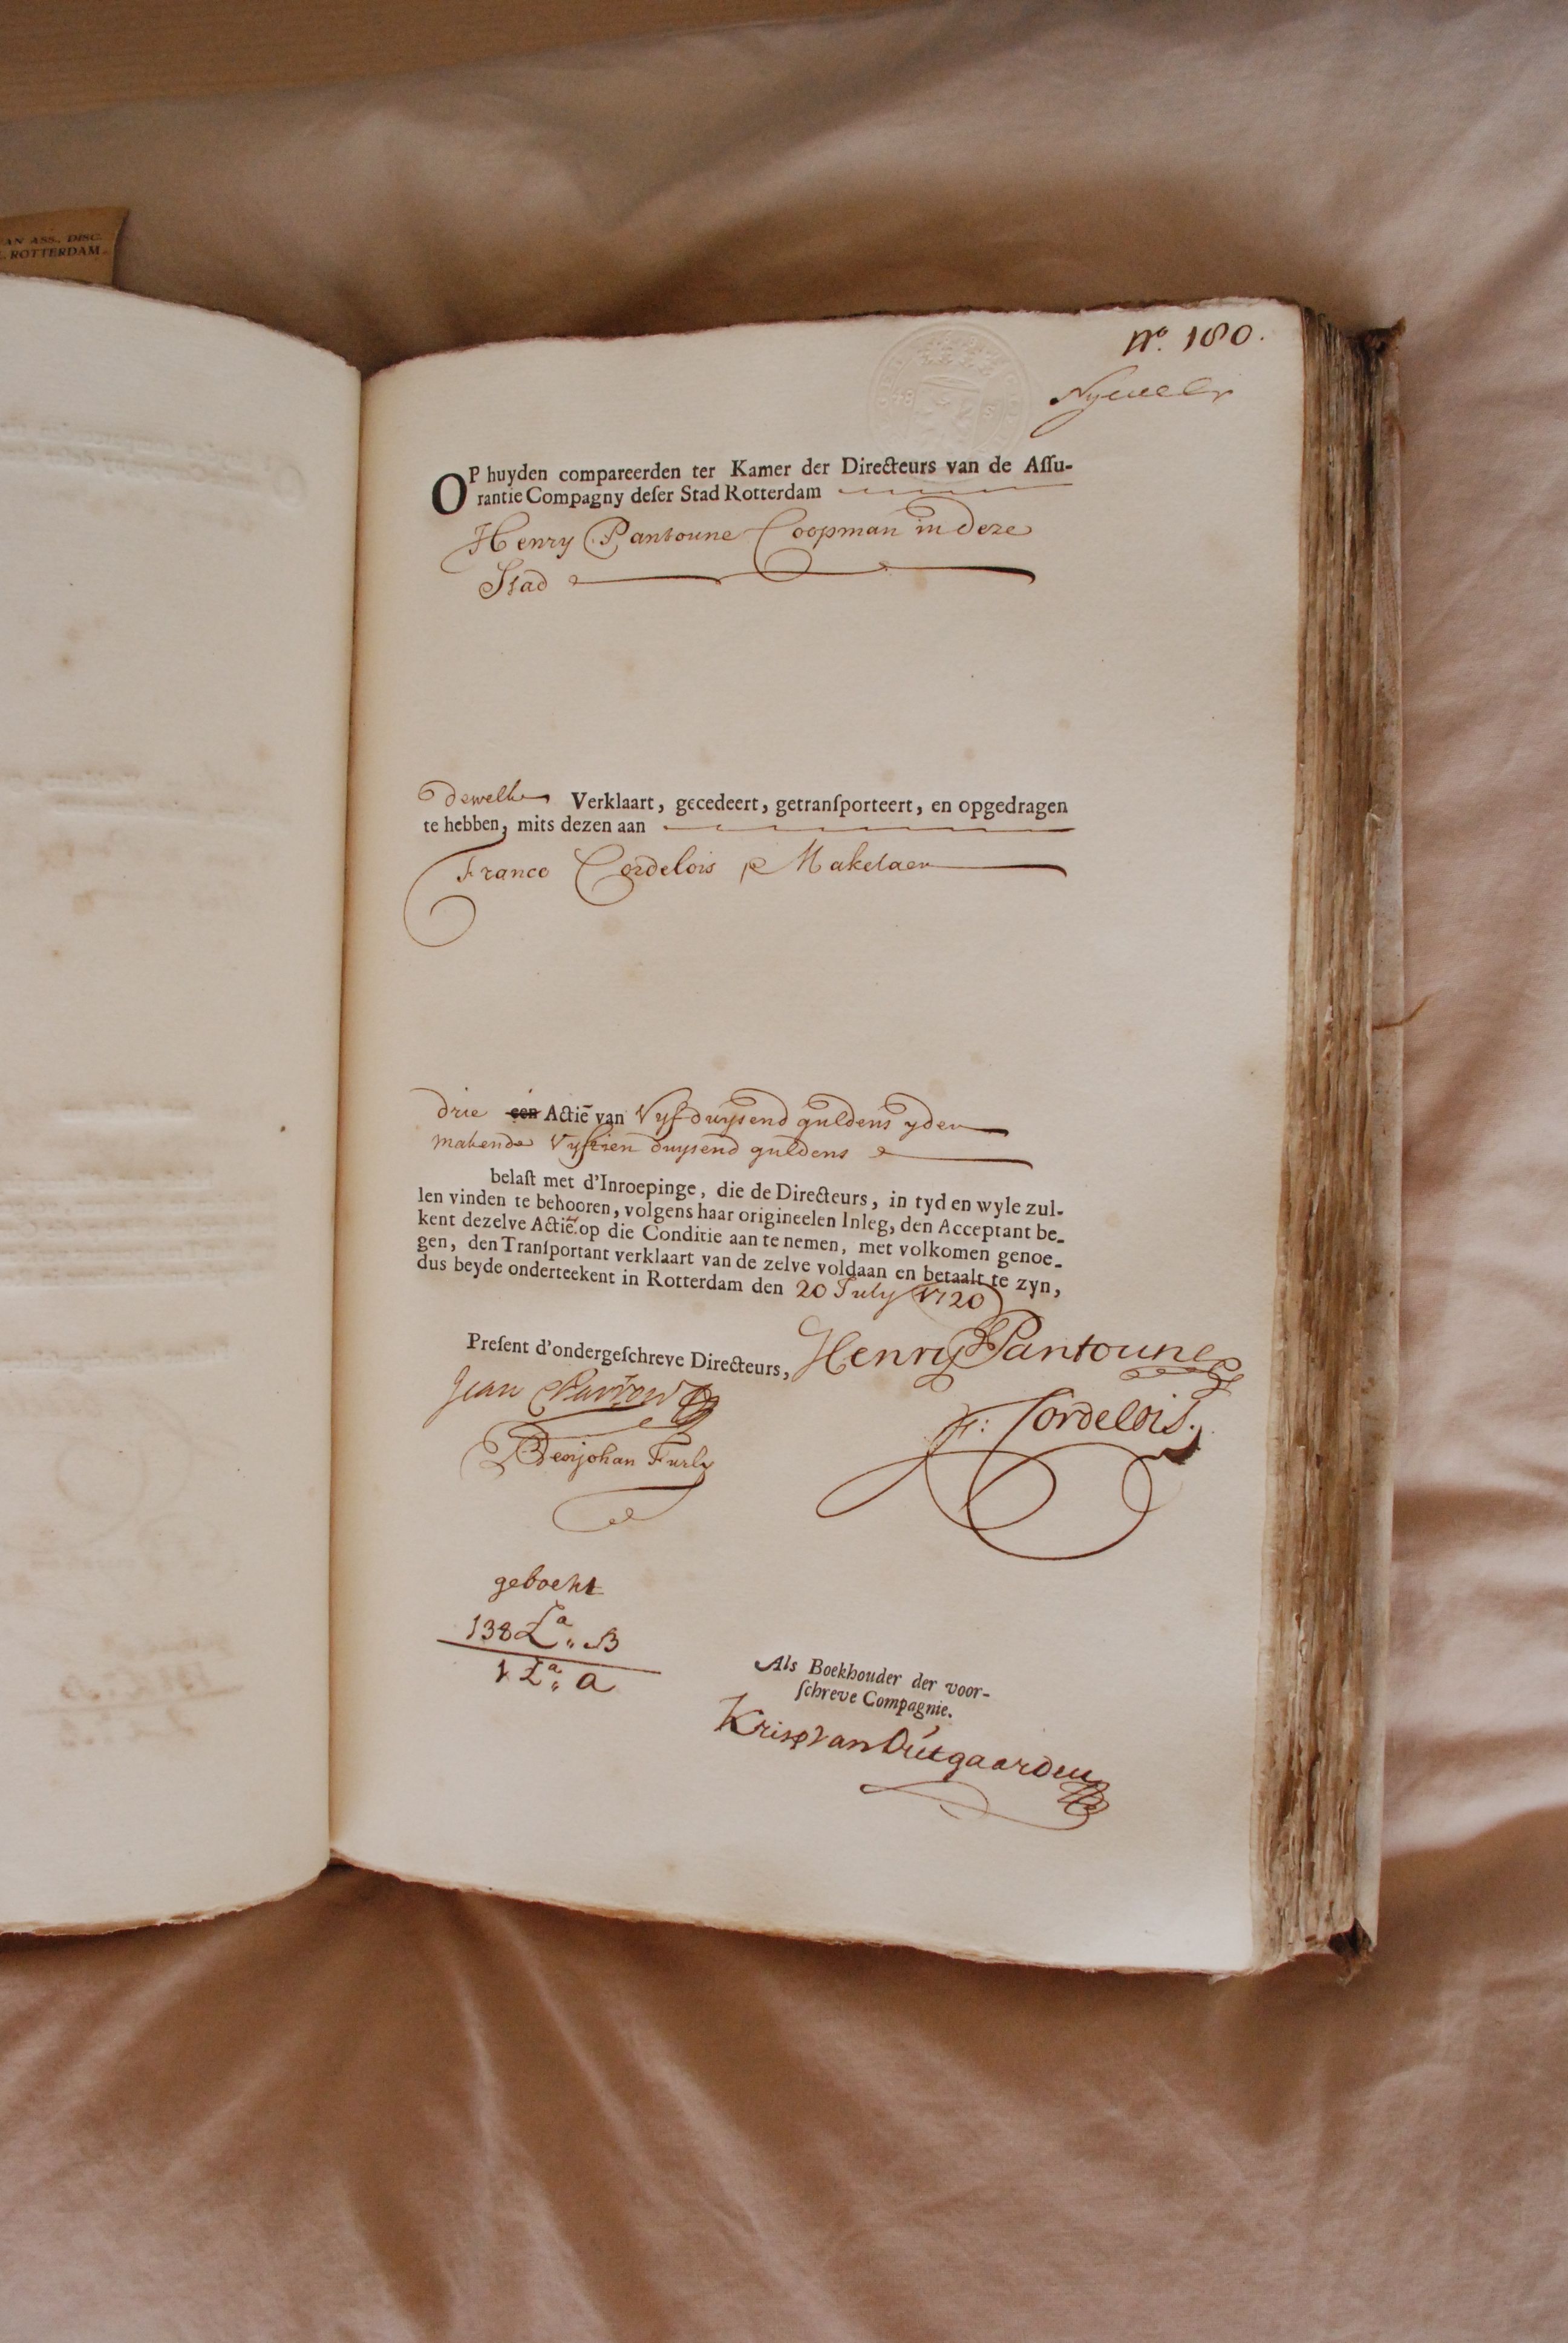 AN ASS. DISC.
ROTTERDAM
No. 180.
OP huyden compareerden ter Kamer der Directeurs van de Aſſu-
rantie Compagny deſer Stad Rotterdam
Henry Pantoune Coopman in deze
Stad
dewelke Verklaart, gecedeert, getranſporteert, en opgedragen
te hebben, mits dezen aan
Franco Cordelois Makelaer
drie een Actiē van Vyf duysend guldens yder
makende Vyftien duysend guldens
belaſt met d'Inroepinge, die de Directeurs, in tyd en wyle zul-
len vinden te behooren, volgens haar origineelen Inleg, den Acceptant be-
kent dezelve Actiē op die Conditie aan te nemen, met volkomen genoe-
gen, den Tranſportant verklaart van de zelve voldaan en betaalt te zyn,
dus beyde onderteekent in Rotterdam den 20 July 1720
Preſent d'ondergeſchreve Directeurs, Henry Pantoune
Jean
F: Cordelois.
Benjohan Furly
geboekt
138 La. B
1 La. a
Als Boekhouder der voor-
ſchreve Compagnie.
Krisp van Uitgaarden